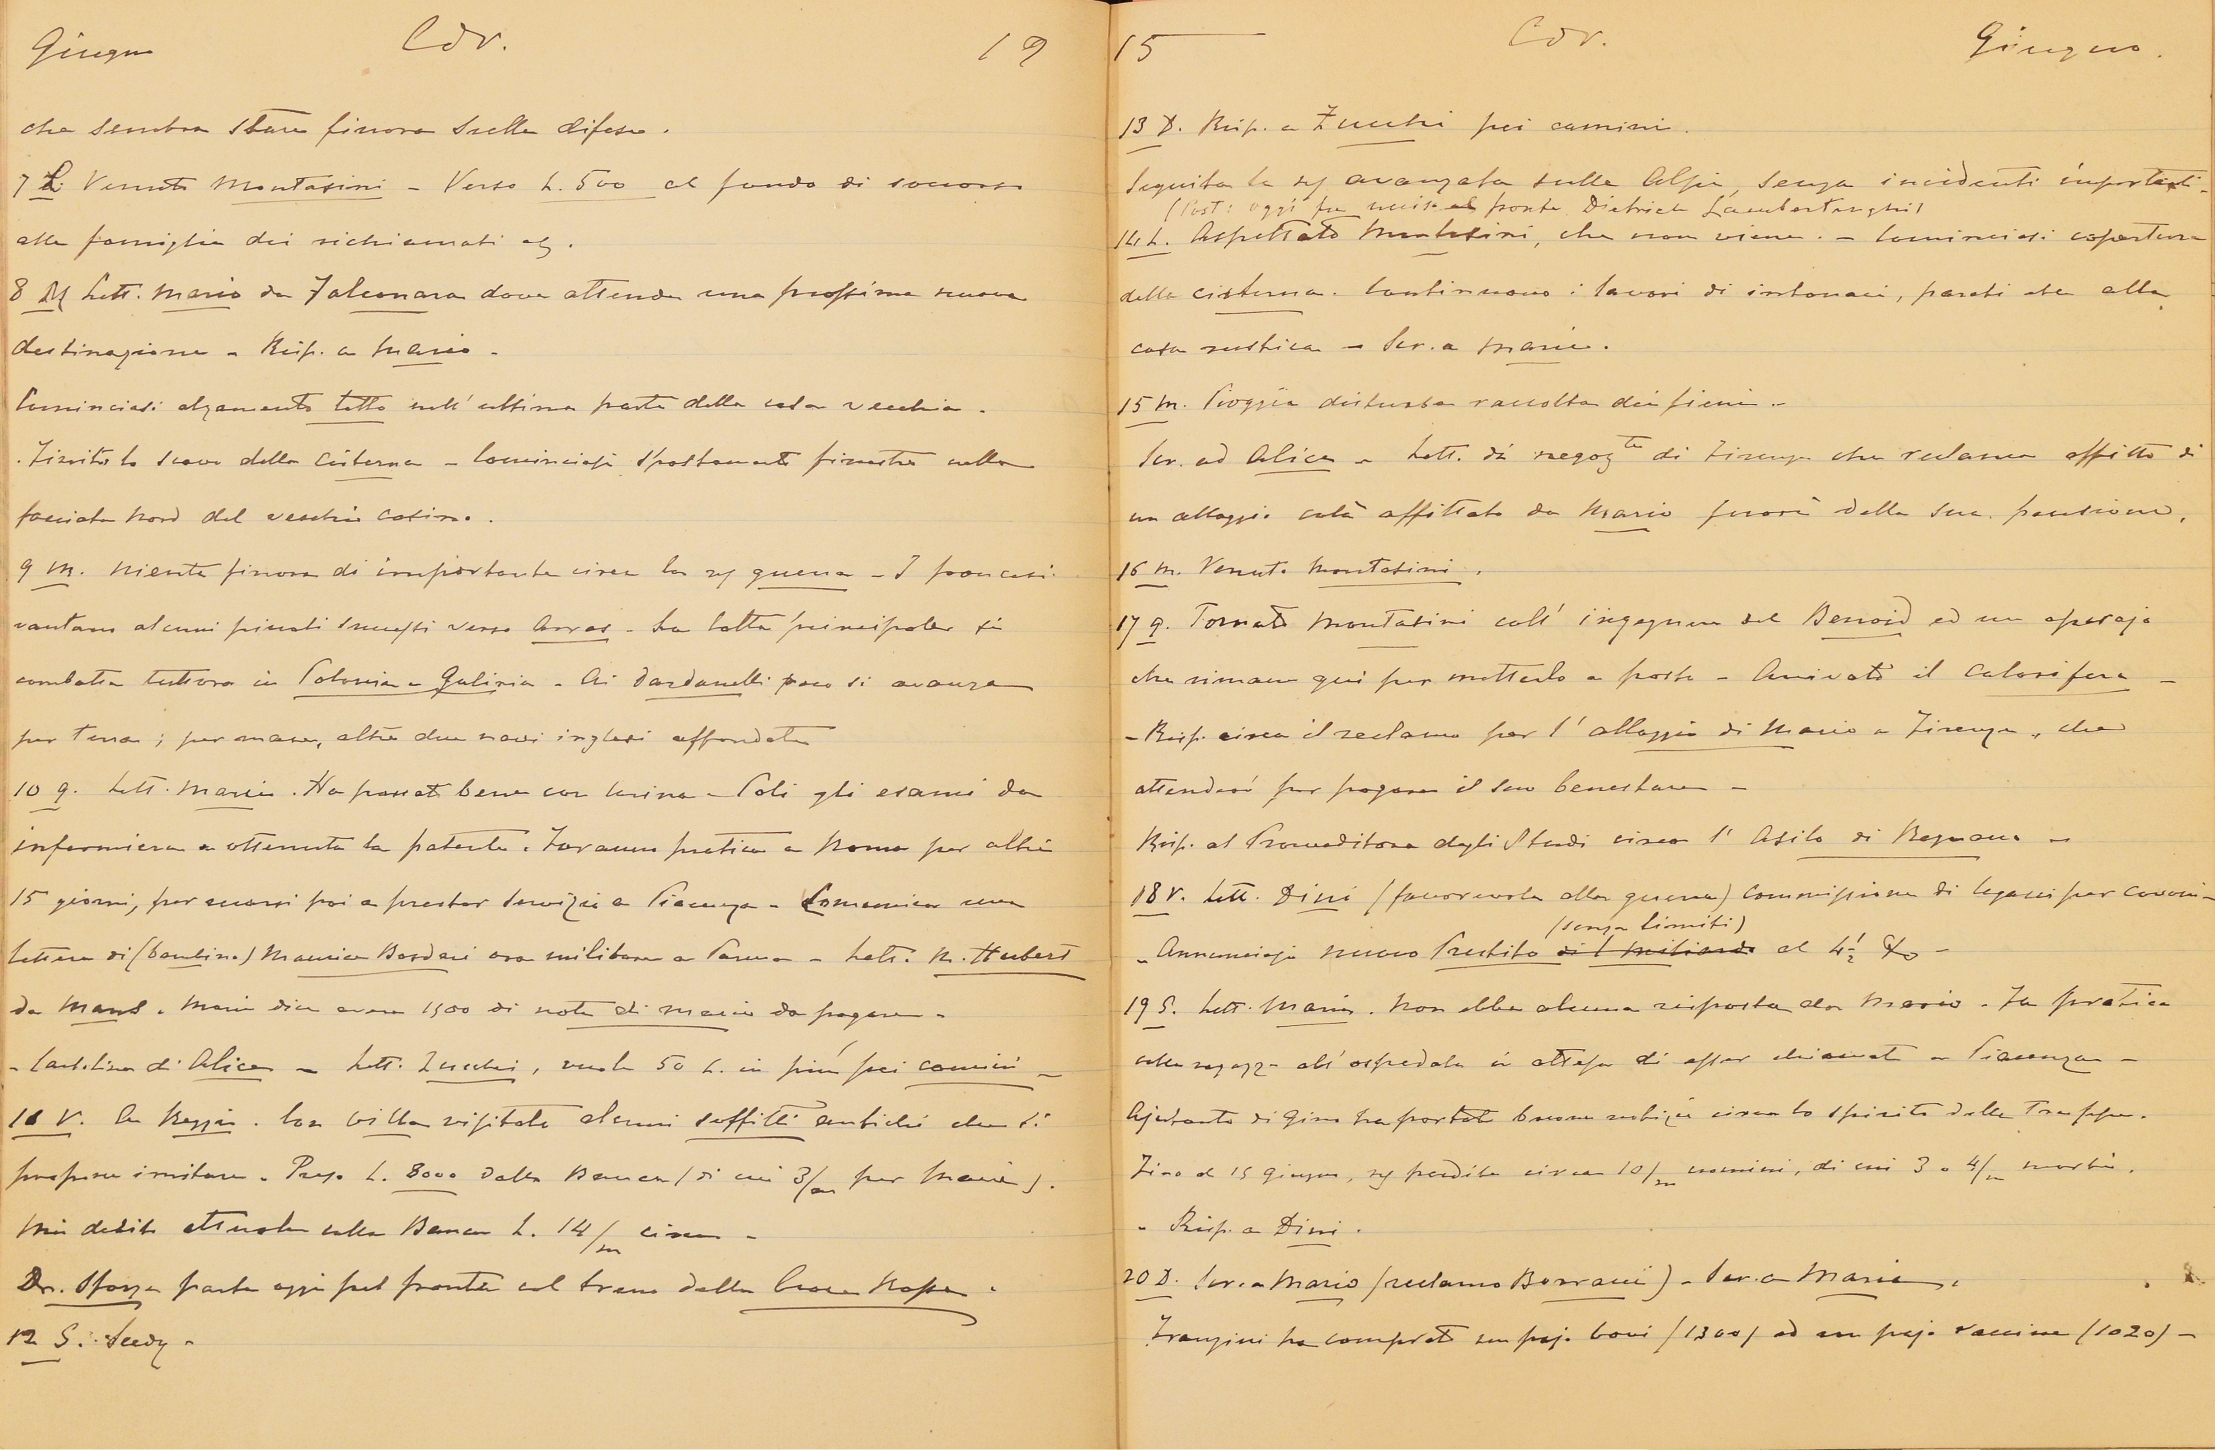 Giugno Cdv. 19
che sembra stare finora sulla difesa.
7 L. Venuto Montasini - Verso L. 500 al fondo di soccorso
alle famiglie dei richiamati
8 M Lett. Mario da Falconara dove attende una prossima nuova
destinazione - Risp. a Mario -
Cominciasi alzamento tetto nell'ultima parte della casa vecchia.
Finito lo scavo della cisterna - Cominciasi spostamento finestre nella
facciata Nord del vecchio casino.
9 M. Niente finora di importante circa la guerra - I francesi
vantano alcuni piccoli successi verso Arras - La lotta principale si
combatte tuttora in Polonia e Galizia - Ai Dardanelli poco si avanza
per terra; per mare, altre due navi inglesi affondate
10 G. Lett. Maria. Ha passato bene con Gli esami da
infermiera e ottenuta la patente. Faranno pratica a Roma per altri
15 giorni, per recarsi poi a prestar servizio a Piacenza - Comunica una
lettera di (bambino) Maurice ora militare a Parma - Lett. M. Hubert
da Mans. Maria dice avere 1500 di note di Mario da pagare -
- Cartolina di Alice - Lett. Zucchi, vuole 50 L. in più pei camini -
11 V. A Reggio. Con visitato alcuni soffitti antichi che si
propone imitare - Preso L. 8000 dalla Banca (di cui 3/m per Maria).
Mio debito attuale colla Banca L. 14/m circa -
Dr. Sforza parte oggi pel fronte col treno della Croce Rossa.
12 S.
15 Cdv. Giugno.
13 D. Risp. a Zucchi pei camini.
Seguita la avanzata sulle Alpi, senza incidenti importanti -
(Post: oggi fu ucciso al fronte Dietrich Lambertenghi)
14 L. Aspettato Montasini, che non viene. - Cominciasi copertura
della cisterna. Continuano i lavori di intonaci, pareti ecc alla
casa rustica - Scr. a Maria.
15 M. Pioggia disturba raccolta dei fieni -
Scr. ad Alice - Lett. di negozte di Firenze che reclama affitto di
un alloggio colà affittato da Mario fuori della sua pensione.
16 M. Venuto Montasini.
17 G. Tornato Montasini coll' ingegnere del Benoid ed un operajo
che rimane qui per metterlo a posto - Arrivato il Calorifero -
- Risp. circa il reclamo per l' alloggio di Mario a Firenze, che
attenderò per pagare il suo benestare -
Risp. al Provveditore degli Studi circa l' Asilo di Regnano -
18 V. Lett. Dini (favorevole alla guerra) Commissione di legacci per
(senza limiti)
- Annunciasi nuovo Prestito di 1 miliardo al 4 1/2 % -
19 S. Lett. Maria. Non ebbe alcuna risposta da Mario. Fa pratica
colle ragazze all' ospedale in attesa di esser chiamate a Piacenza -
Ajutante di Gino ha portato buone notizie circa lo spirito delle Truppe.
Fino al 15 Giugno, perdite circa 10/m uomini, di cui 3 o 4/m morti.
- Risp. a Dini.
20 D. Scr. a Mario (reclamo Borrani) - Scr. a Maria.
Franzini ha comprato un pajo bovi (1300) ed un pajo vaccine (1020) -